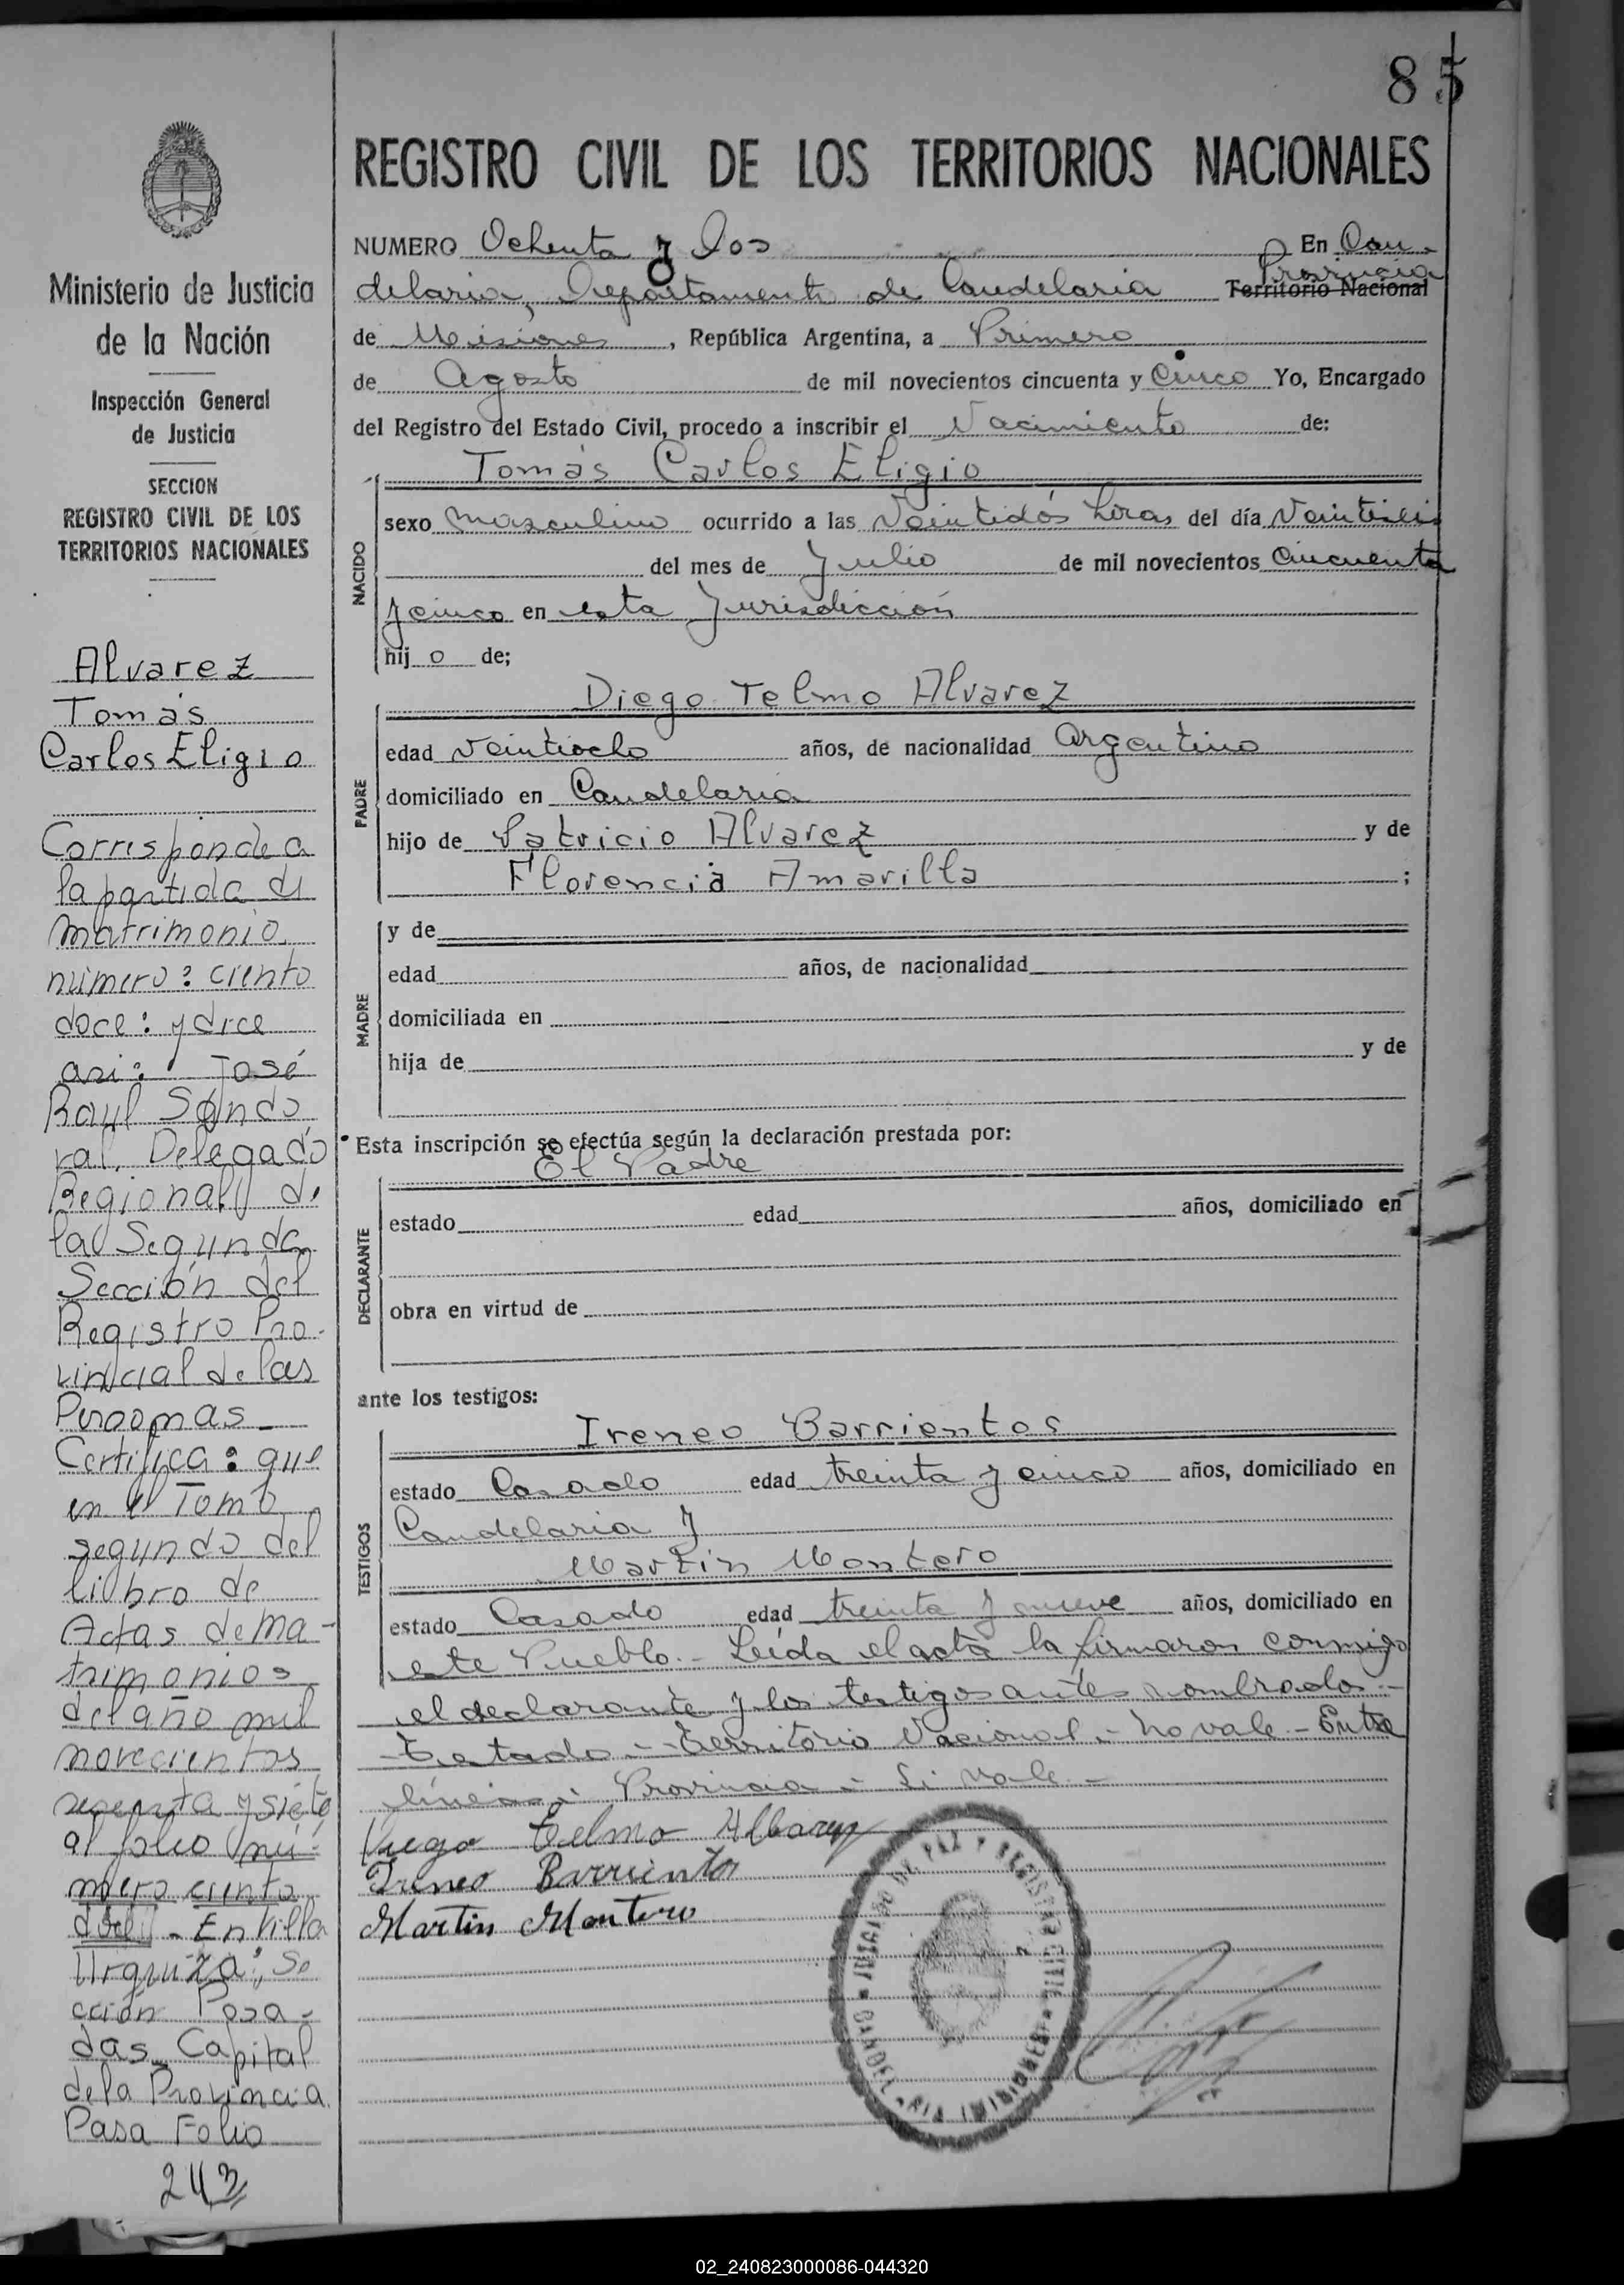 85
REGISTRO CIVIL DE LOS TERRITORIOS NACIONALES
NUMERO Ochenta y Dos En Can-
Provincia
delaria, Departamento de Candelaria Territorio Nacional
de Misiones, República Argentina, a Primero
de Agosto de mil novecientos cincuenta y Cinco Yo, Encargado
del Registro del Estado Civil, procedo a inscribir el Nacimiento de:
Tomás Carlos Eligio
NACIDO
sexo masculino ocurrido a las Veintidós horas del día Veintiseis
del mes de Julio de mil novecientos Cincuenta
y cinco en esta Jurisdicción
hij o de;
Diego Telmo Alvarez
PADRE
edad Veintiocho años, de nacionalidad Argentino
domiciliado en Candelaria
hijo de Patricio Alvarez y de
Florencia Amarilla ;
MADRE
y de
edad años, de nacionalidad
domiciliada en
hija de y de
Esta inscripción se efectúa según la declaración prestada por:
El Padre
DECLARANTE
estado edad años, domiciliado en
obra en virtud de
ante los testigos:
Ireneo Barrientos
TESTIGOS
estado Casado edad treinta y cinco años, domiciliado en
Candelaria y
Martín Montero
estado Casado edad treinta y nueve años, domiciliado en
este Pueblo.- Leída el acta la firmaron conmigo
el declarante y los testigos antes nombrados.-
Testado - Territorio Nacional - no vale - Entre
líneas: Provincia - Si vale -
Diego Telmo Albarez
Ireneo Barrientos
Martin Montero
JUZGADO DE PAZ Y REGISTRO CIVIL
Ministerio de Justicia
de la Nación
Inspección General
de Justicia
SECCION
REGISTRO CIVIL DE LOS
TERRITORIOS NACIONALES
Alvarez
Tomás
Carlos Eligio
Corresponde a
la partida de
matrimonio
número: ciento
doce: y dice
asi: José
Raul Sando
val, Delegado
Regional de
la Segunda
Sección del
Registro Pro-
vincial de las
Personas_
Certifica: que
en el Tomo
segundo del
libro de
Actas de ma-
trimonios
del año mil
novecientos
setenta y siete
al folio nú-
mero ciento
doce - En Villa
Urquiza, Se
cción Posa-
das_ Capital
de la Provincia
Pasa Folio
243
02_240823000086-044320